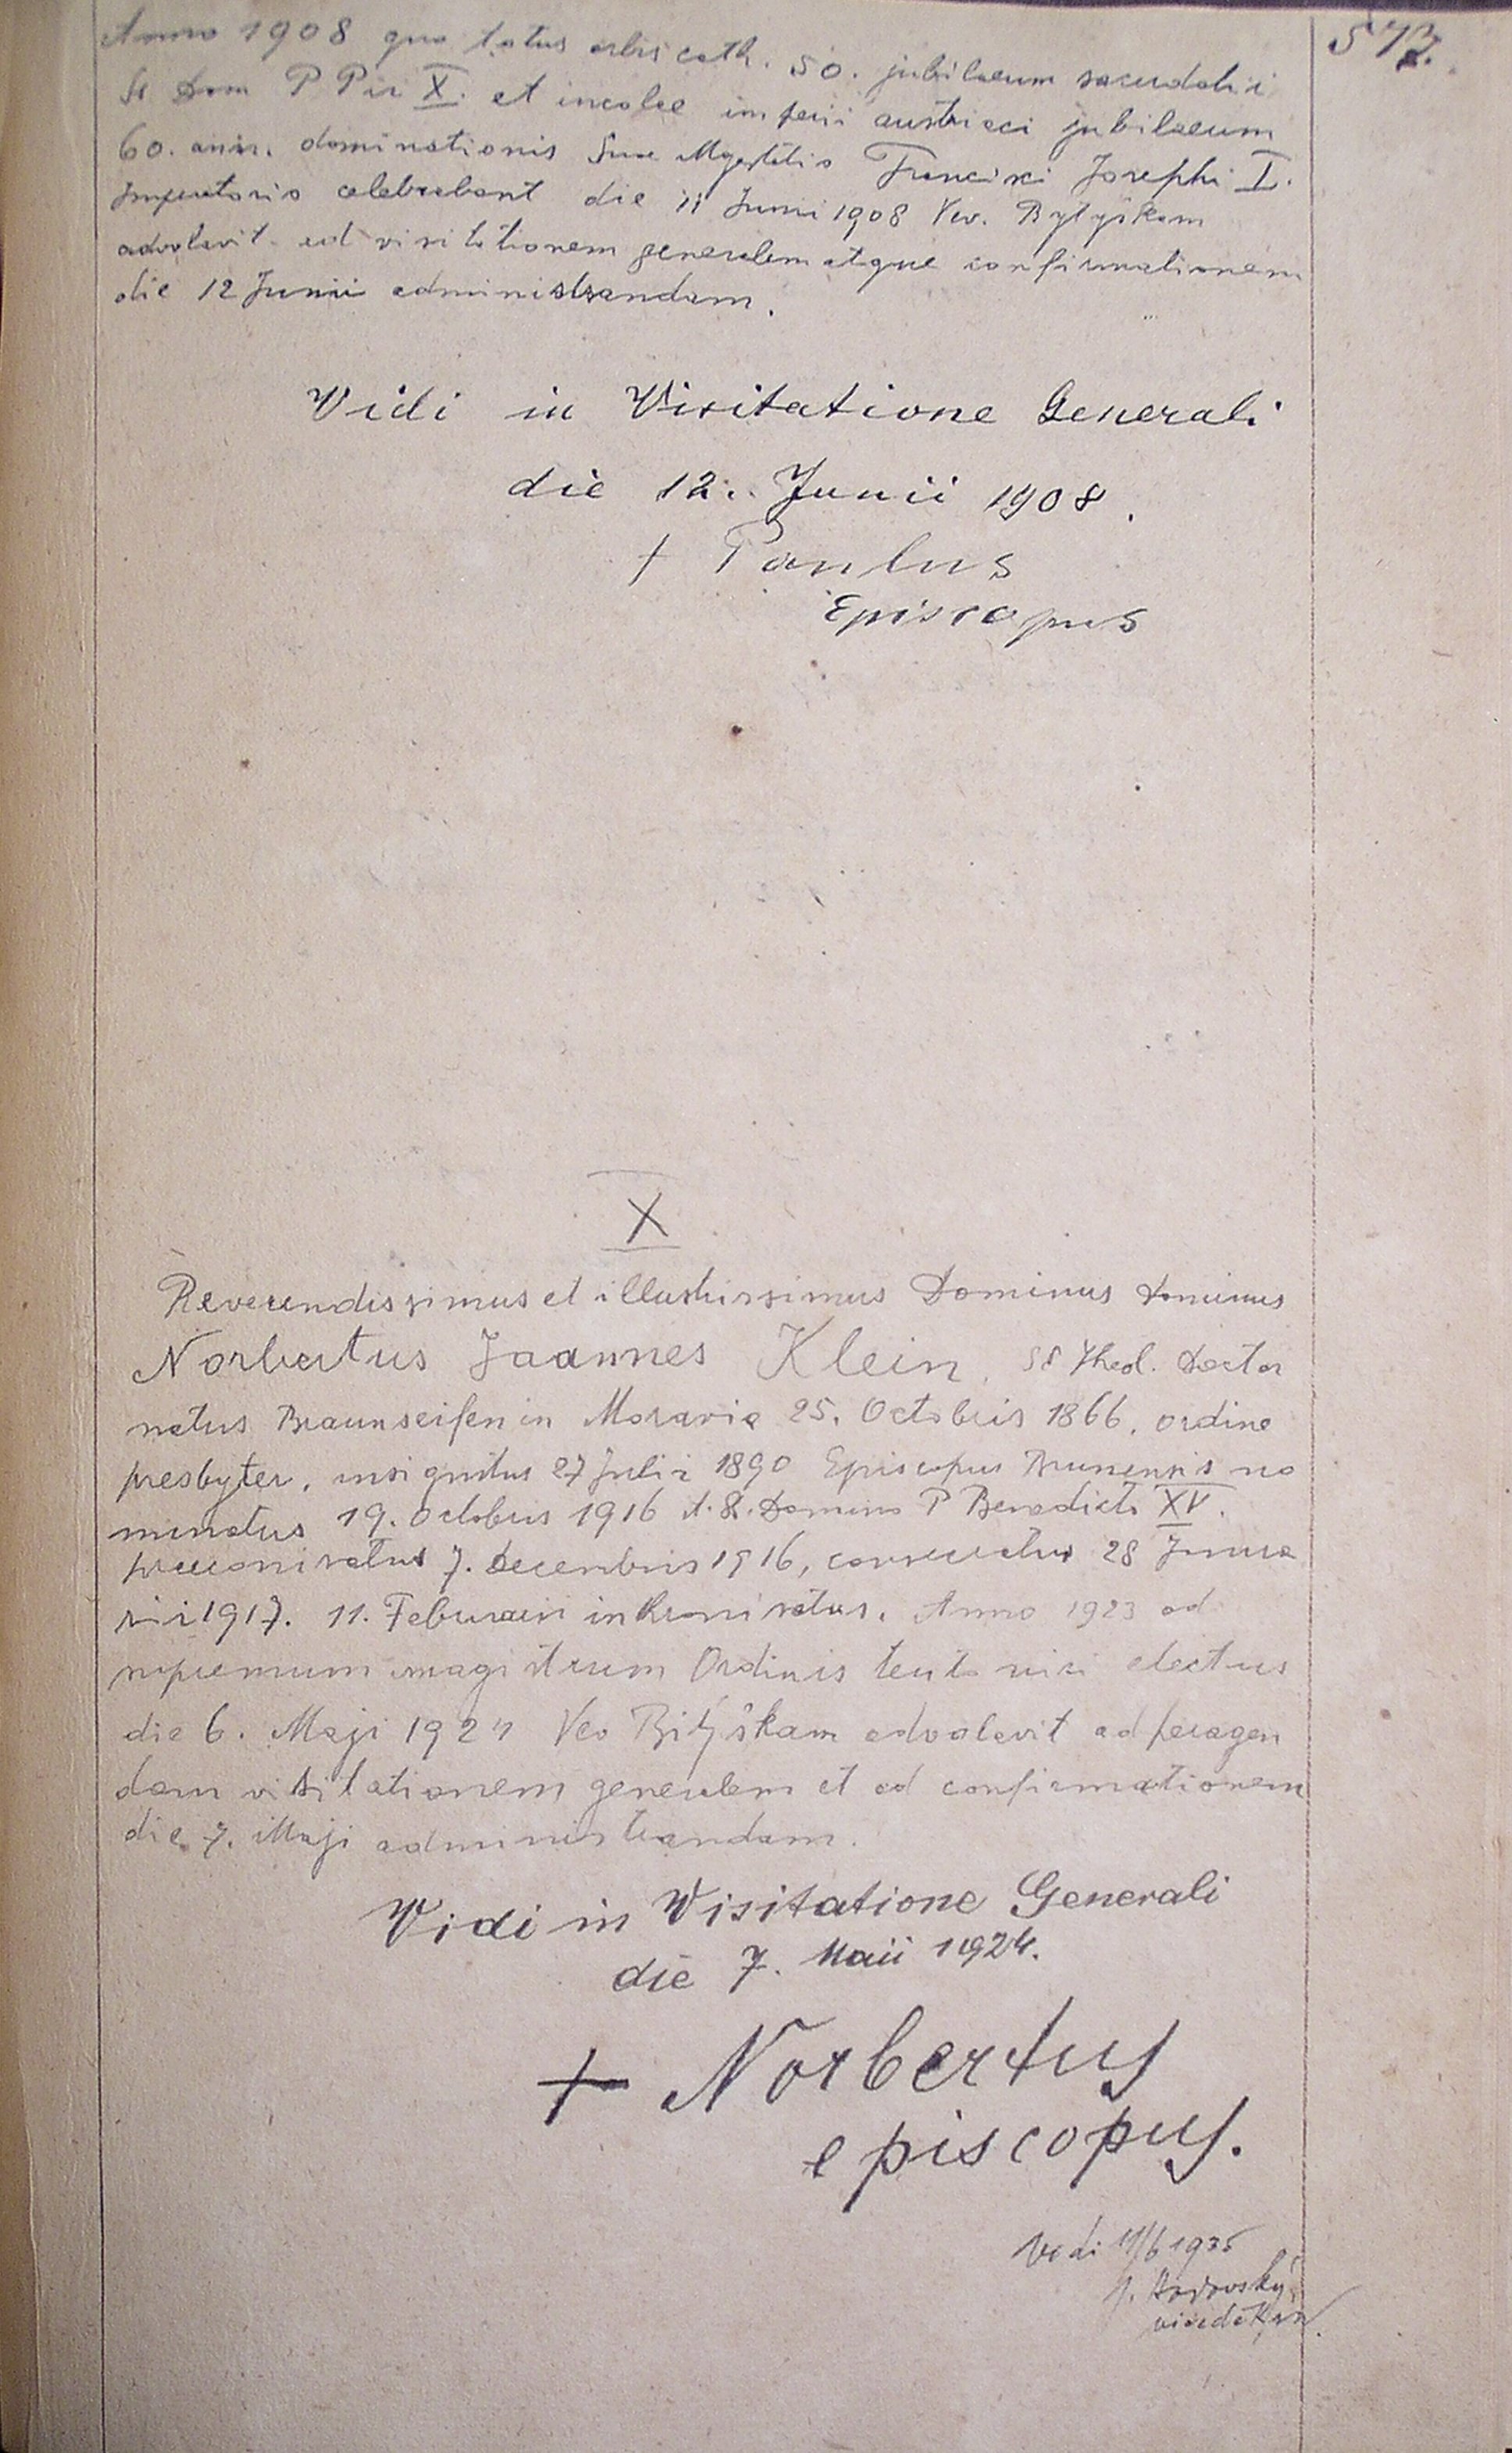 577.
Anno 1908 quo totus orbis cath. 50. jubilaeum sacerdotii
St Dom P Pii X. et incolae imperii austriaci jubilaeum
60. ann. dominationis Suae Majestatis Francisci Josephi I.
Imperatoris celebrabant die 11 Junii 1908 Vev. Bytýškam
advolavit ad visitationem generalem atque confirmationem
die 12 Junii administrandam.
Vidi in Visitatione Generali
die 12. Junii 1908.
† Paulus
Episcopus
X
Reverendissimus et illustrissimus Dominus Dominus
Norbertus Joannes Klein, SS Theol. Doctor
natus Braunseifen in Moravia 25. Octobris 1866, ordine
presbyter. insignitus 27 Julii 1890 Episcopus Brunensis no
minatus 19. Octobris 1916 a. S. Domino P Benedicto XV.
praeconisatus 7. Decembris 1916, consecratus 28 Janua
rii 1917. 11. Februarii inthronisatus. Anno 1923 ad
supremum magistrum Ordinis teutonici electus
die 6. Maji 1924 Vev Bitýškam advolavit ad peragen
dam visitationem generalem et ad confirmationem
die 7. Maji administrandam.
Vidi in Visitatione Generali
die 7. Maii 1924.
† Norbertus
episcopus.
Vidi 11/6 1935
viceděkan.